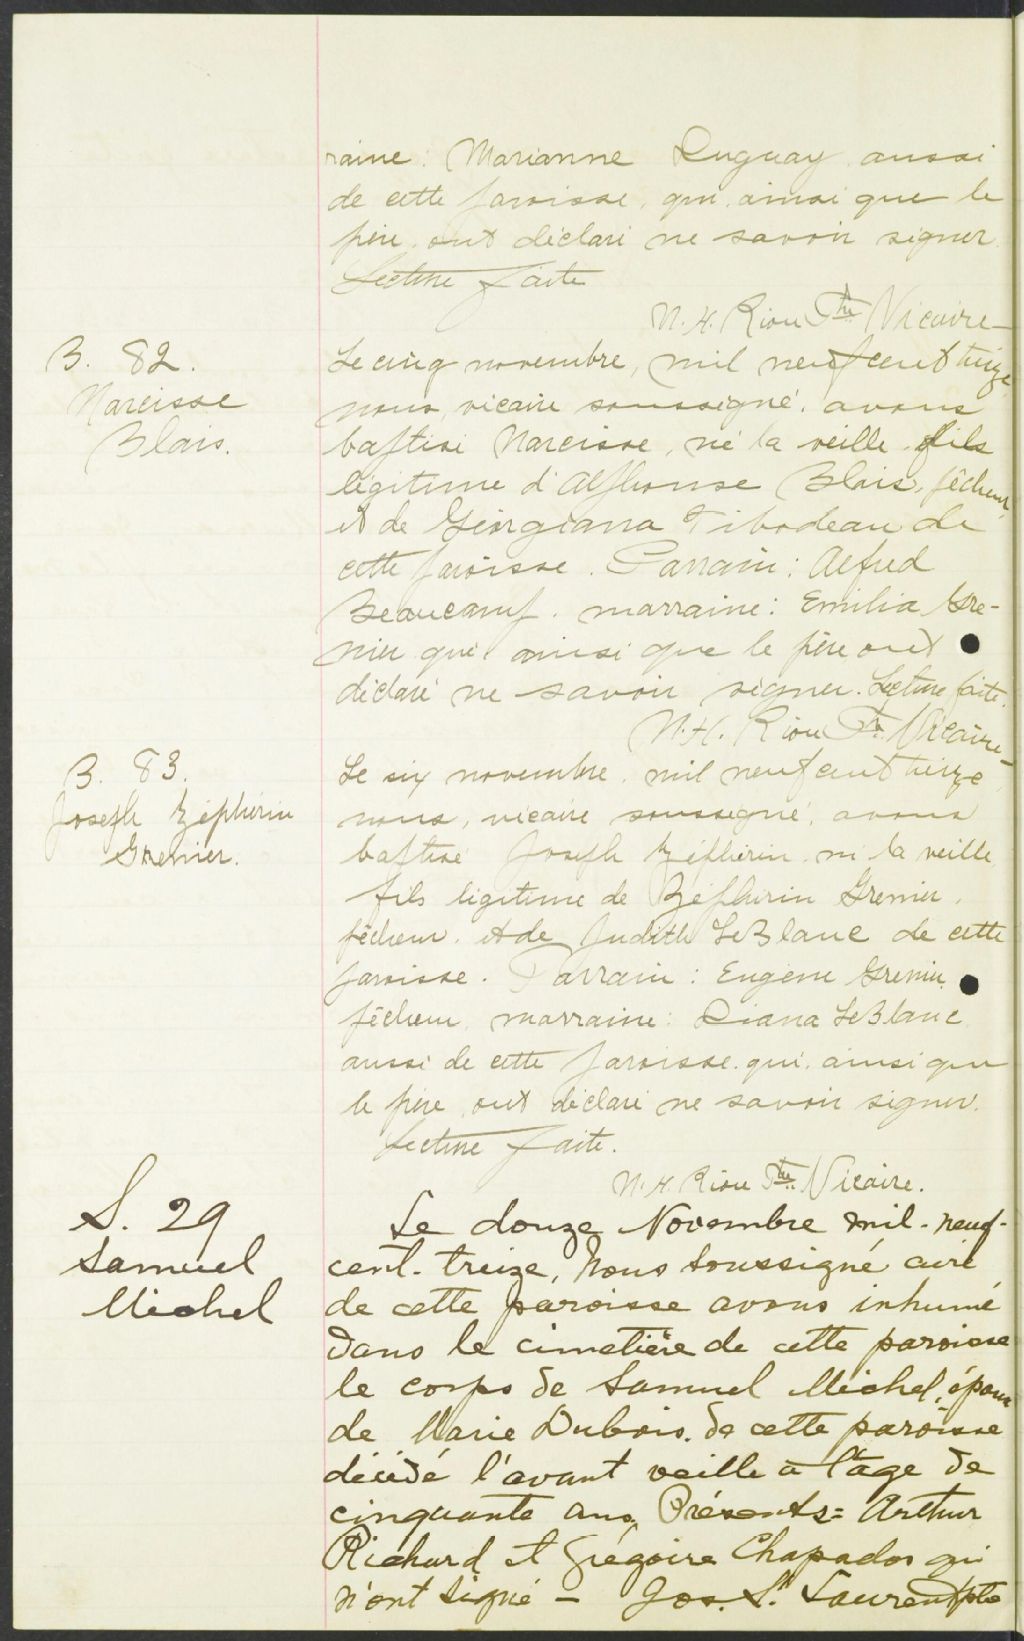 raine: Marianne Duguay aussi
de cette paroisse, qui ainsi que le
père, ont déclaré ne savoir signer.
Lecture faite
N. H. Riou Ptre Vicaire
B. 82.
Narcisse
Blais.
Le cinq novembre, mil neuf cent treize
nous, vicaire soussigné, avons
baptisé Narcisse, né la veille, fils
légitime d'Alphonse Blais, pêcheur,
et de Géorgianna Tibodeau de
cette paroisse. Parrain: Alfred
Beaucamp. marraine: Emilia Gre-
nier qui ainsi que le père ont
déclaré ne savoir signer. Lecture faite.
N. H. Riou Ptre Vicaire
B. 83.
Joseph Zéphirin
Grenier.
Le six novembre, mil neuf cent treize
nous, vicaire soussigné, avons
baptisé Joseph Zéphirin, né la veille
fils légitime de Zéphirin Grenier,
pêcheur, et de Judith LeBlanc de cette
paroisse. Parrain: Eugène Grenier,
pêcheur, marraine: Diana LeBlanc
aussi de cette paroisse, qui, ainsi que
le père, ont déclaré ne savoir signer.
Lecture faite.
N. H. Riou Ptre Vicaire.
S. 29
Samuel
Michel
Le douze Novembre mil-neuf-
cent-treize, Nous soussigné curé
de cette paroisse avons inhumé
dans le cimetière de cette paroisse
le corps de Samuel Michel, époux
de Marie Dubois, de cette paroisse
décédé l'avant veille à l'âge de
cinquante ans. Présents: Arthur
Richard et Grégoire Chapados qui
n'ont signé – Jos. St Laurent ptre